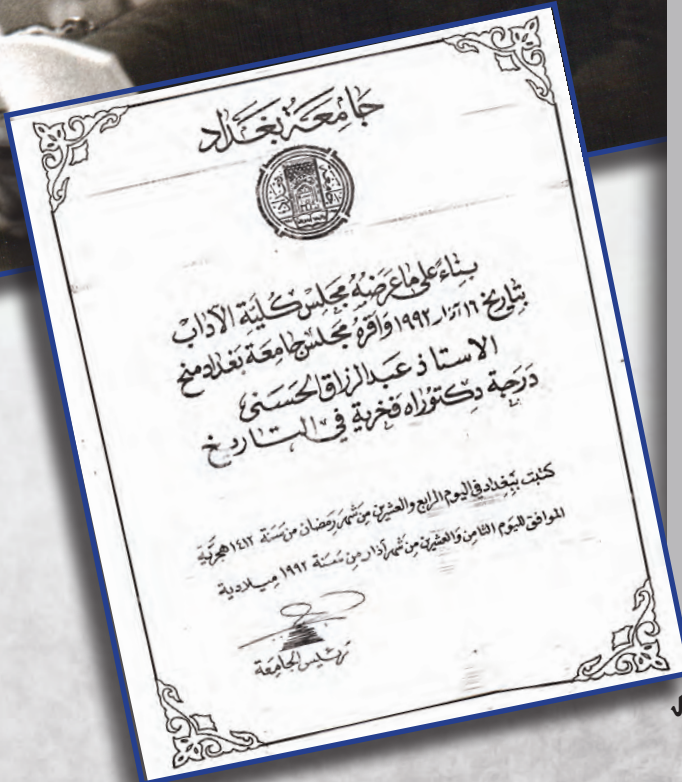 جامعة بغداد
بناءً على ما عرضه مجلس كلية الآداب
بتاريخ ١٦ آذار ١٩٩٢ واقره مجلس جامعة بغداد منح
الاستاذ عبدالرزاق الحسني
درجة دكتوراه فخرية في التاريخ
كتبت ببغداد في اليوم الرابع والعشرين من شهر رمضان من سنة ١٤١٢ هجرية
الموافق لليوم الثامن والعشرين من شهر آذار من سنة ١٩٩٢ ميلادية
رئيس الجامعة